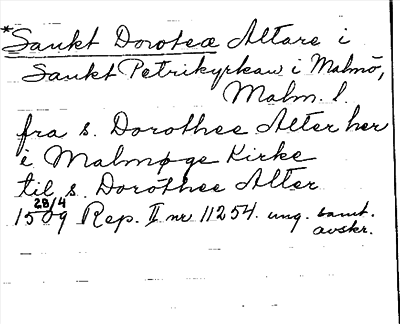 *Sankt Doroteæ Altare i
Sankt Petrikyrkan i Malmö,
Malm. l.
fra s. Dorothee Alter her
i Malmøge Kirke
til s. Dorothee Alter
1509 28/4 Rep. II nr 11254. ung. samt.
avskr.